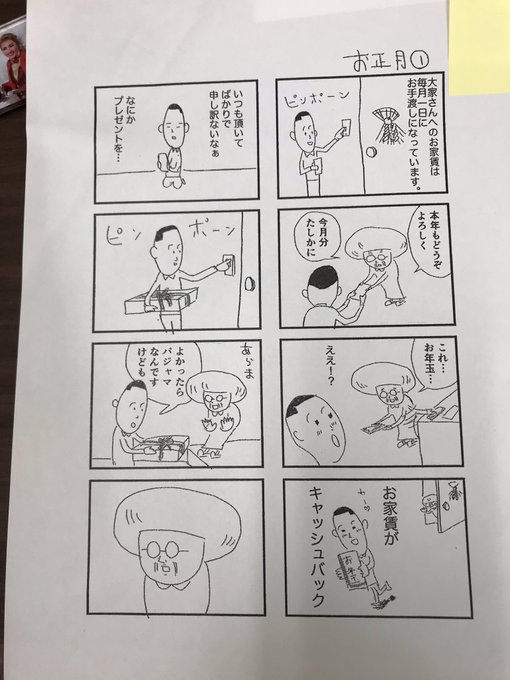 お正月①
大家さんへのお家賃は
毎月一日に
お手渡しになっています。
ピンポーン
本年もどうぞ
よろしく
今月分
たしかに
これ…
お年玉…
ええ!?
お家賃が
キャッシュバック
お年玉
いつも頂いて
ばかりで
申し訳ないなぁ
なにか
プレゼントを…
ピンポーン
あらま
よかったら
パジャマ
なんです
けども